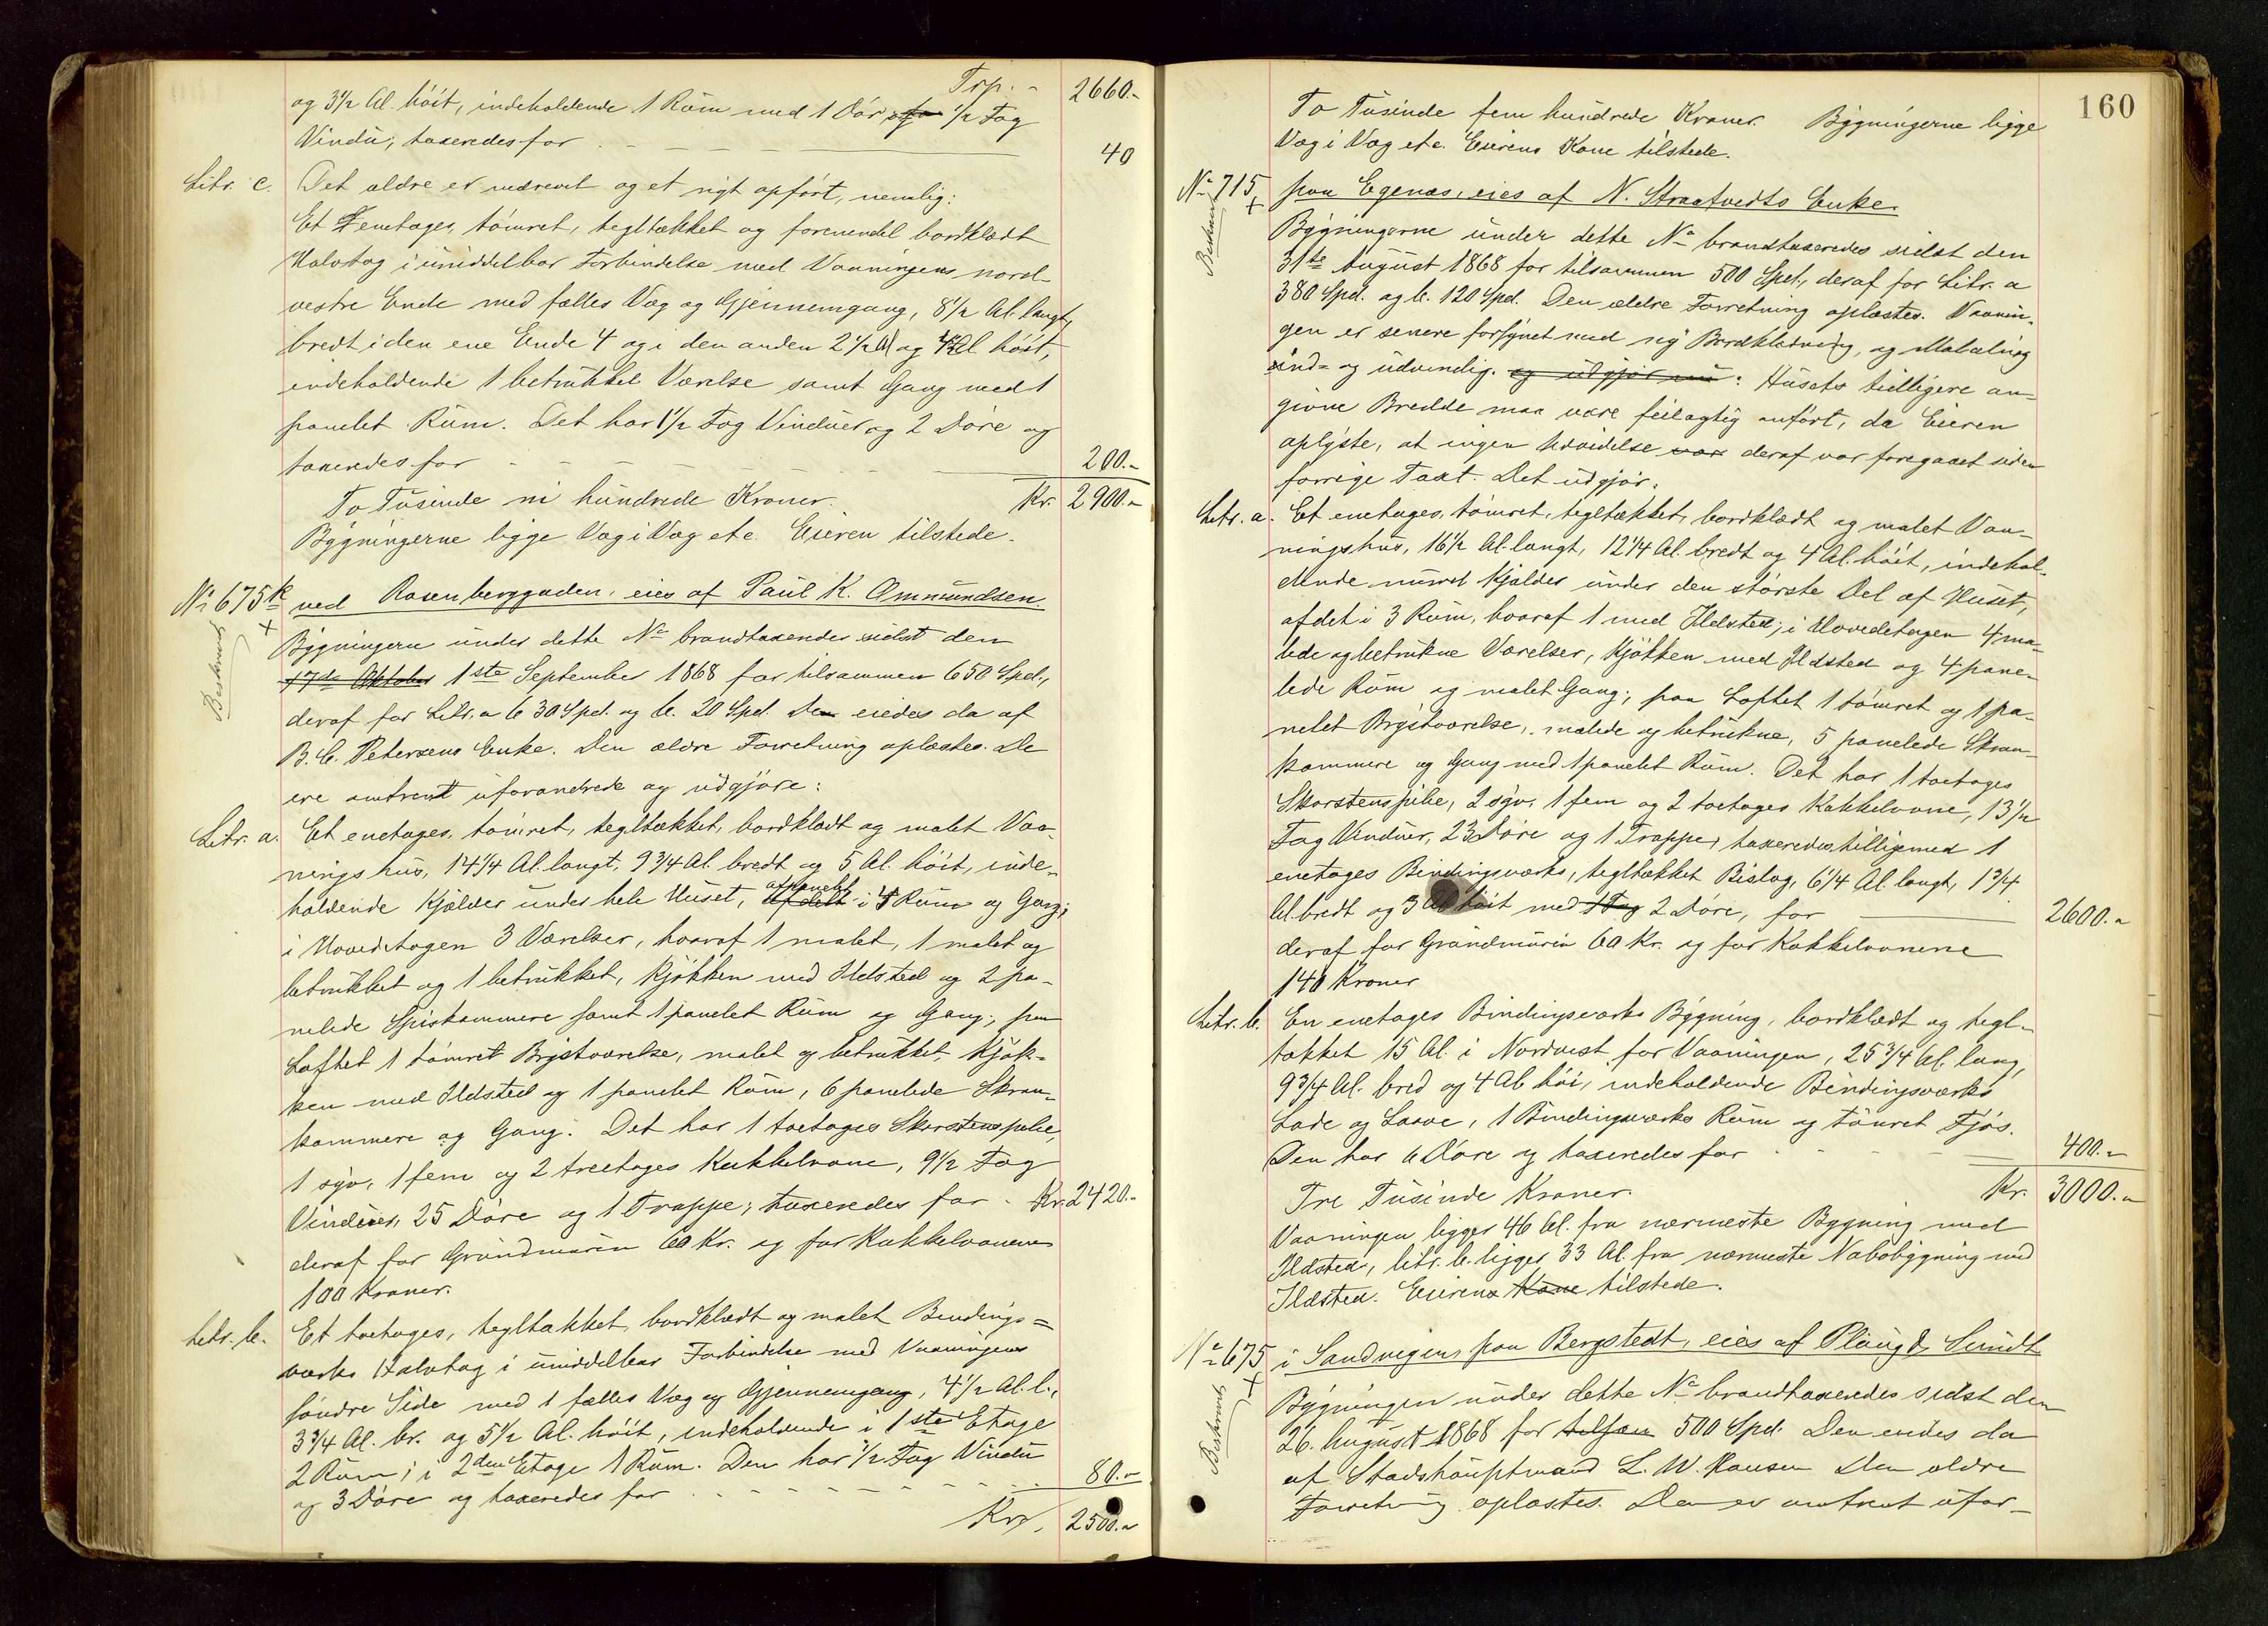 Trp. - 2660.-
og 3 1/2 Al. høit, indeholdende 1 Rum med 1 Dør og 1/2 Fag
Vindu; taxeredes for - - - - 40
Litr. c. Det ældre er nedrevet og et nyt opført, nemlig:
Et Eenetages, tømret, tegltækket og forenendel bordklædt
Halvtag i umiddelbar Forbindelse med Vaaningens nord-
vestre Ende med fælles Væg og Gjennemgang, 8 1/2 Al. langt,
bredt i den ene Ende 4 og i den anden 2 1/2 Al og 4 Al. høit,
indeholdende 1 betrukket Værelse samt Gang med 1
panelet Rum. Det har 1 1/2 Fag Vinduer og 2 Døre og
taxeredes for - - - - 200.-
To Tusinde ni hundrede Kroner. Kr. 2900.-
Bygningerne ligge Væg i Væg etc. Eieren tilstede.
No 675k ved Rosenberggaden, eies af Paul K. Ommundsen.
+
Beskrevet
Bygningern under dette No brandtaxeredes sidst den
17de Oktober 1ste September 1868 for tilsammen 650 Spd.,
deraf for Litr. a 630 Spd. og b. 20 Spd. De eiedes da af
B. C. Petersens Enke. Den ældre Forretning oplæstes. De
ere omtrent uforandrede og udgjøre:
Litr. a. Et enetages, tømret, tegltækket, bordklædt og malet Vaa-
ningshus, 14 1/4 Al. langt, 9 3/4 Al. bredt og 5 Al. høit, inde-
holdende Kjælder under hele Huset, afdelt afpanelet i 4 Rum og Gang;
i Hovedetagen 3 Værelser, hvoraf 1 malet, 1 malet og
betrukket og 1 betrukket, Kjøkken med Ildsted og 2 pa-
nelede Spiskammere samt 1 panelet Rum og Gang; paa
Loftet 1 tømret Brystværelse, malet og betrukket, Kjøk-
ken med Ildsted og 1 panelet Rum, 6 panelede Skraa-
kammere og Gang. Det har 1 toetages Skorstenspibe,
1 syv, 1 fem og 2 treetages Kakkelovne, 9 1/2 Fag
Vinduer, 25 Døre og 1 Trappe; taxeredes for - Kr. 2420.-
deraf for Grundmuren 60 Kr. og for Kakkelovnene
100 Kroner.
Litr. b. Et toetages, tegltækket, bordklædt og malet Bindings-
værks Halvtag i umiddelbar Forbindelse med Vaaningens
søndre Side med 1 fælles Væg og Gjennemgang, 4 1/2 Al. l.,
3 3/4 Al. br. og 5 1/2 Al. høit, indeholdende i 1ste Etage
2 Rum; i 2den Etage 1 Rum. Den har 1/2 Fag Vindu
og 3 Døre og taxeredes for - - - - 80.-
Kr. 2500.-
160
To Tusinde fem hundrede Kroner. Bygningerne ligge
Væg i Væg etc. Eierens Kone tilstede.
No 715 paa Egenæs, eies af N. Straatvedts Enke.
+
Beskrevet
Bygningerne under dette No brandtaxeredes sidst den
31te August 1868 for tilsammen 500 Spd., deraf for Litr. a
380 Spd. og b. 120 Spd. Den ældre Forretning oplæstes. Vaanin-
gen er senere forsynet med ny Bordklædning, og Malning
ind- og udvendig. og udgjør nu: Husets tidligere an-
givne Bredde maa være feilagtig anført, da Eieren
oplyste, at ingen Udvidelse var deraf var foregaaet siden
forrige Taxt. Det udgjør:
Litr. a. Et enetages, tømret, tegltækket, bordklædt og malet Vaa-
ningshus, 16 1/2 Al. langt, 12 1/4 Al. bredt og 4 Al. høit, indehol-
dende muret Kjælder under den største Del af Huset,
afdelt i 3 Rum, hvoraf 1 med Ildsted; i Hovedetagen 4 ma-
lede og betrukne Værelser, Kjøkken med Ildsted og 4 pane-
lede Rum og malet Gang; paa Loftet 1 tømret og 1 pa-
nelet Brystværelse, malede og betrukne, 5 panelede Skraa-
kammere og Gang med 1 panelet Rum. Det har 1 toetages
Skorstenspibe, 2 syv, 1 fem og 2 toetages Kakkelovne, 13 1/2
Fag Vinduer, 23 Døre og 1 Trappe, taxeredes tilligemed 1
enetages Bindingsværks, tegltækket Bislag, 6 1/4 Al. langt, 1 3/4
Al. bredt og 3 Al høit med 1 Fag 2 Døre, for 2600.-
deraf for Grundmuren 60 Kr. og for Kakkelovnene
140 Kroner
Litr. b. En enetages Bindingsværks Bygning, bordklædt og tegl-
tækket 15 Al. i Nordvest for Vaaningen, 25 3/4 Al. lang,
9 3/4 Al. bred og 4 Al høi, indeholdende Bindingsværks
Lade og Laave, 1 Bindingsværks Rum og tømret Fjøs.
Den har 6 Døre og taxeredes for - - - 400.-
Tre Tusinde Kroner. Kr. 3000.-
Vaaningen ligger 46 Al. fra nærmeste Bygning med
Ildsted, litr. b. ligger 33 Al. fra nærmeste Nabobygning med
Ildsted. Eierens Kone tilstede.
No 675 i Sandvigen paa Bergstedt, eies af Sundt
+
Beskrevet
Bygningen under dette No brandtaxeredes sidst den
26. August 1868 for tilsam 500 Spd. Den eiedes da
af Stadshauptmand L. W. Hansen Den ældre
Forretning oplæstes. Den er omtrent ufor-